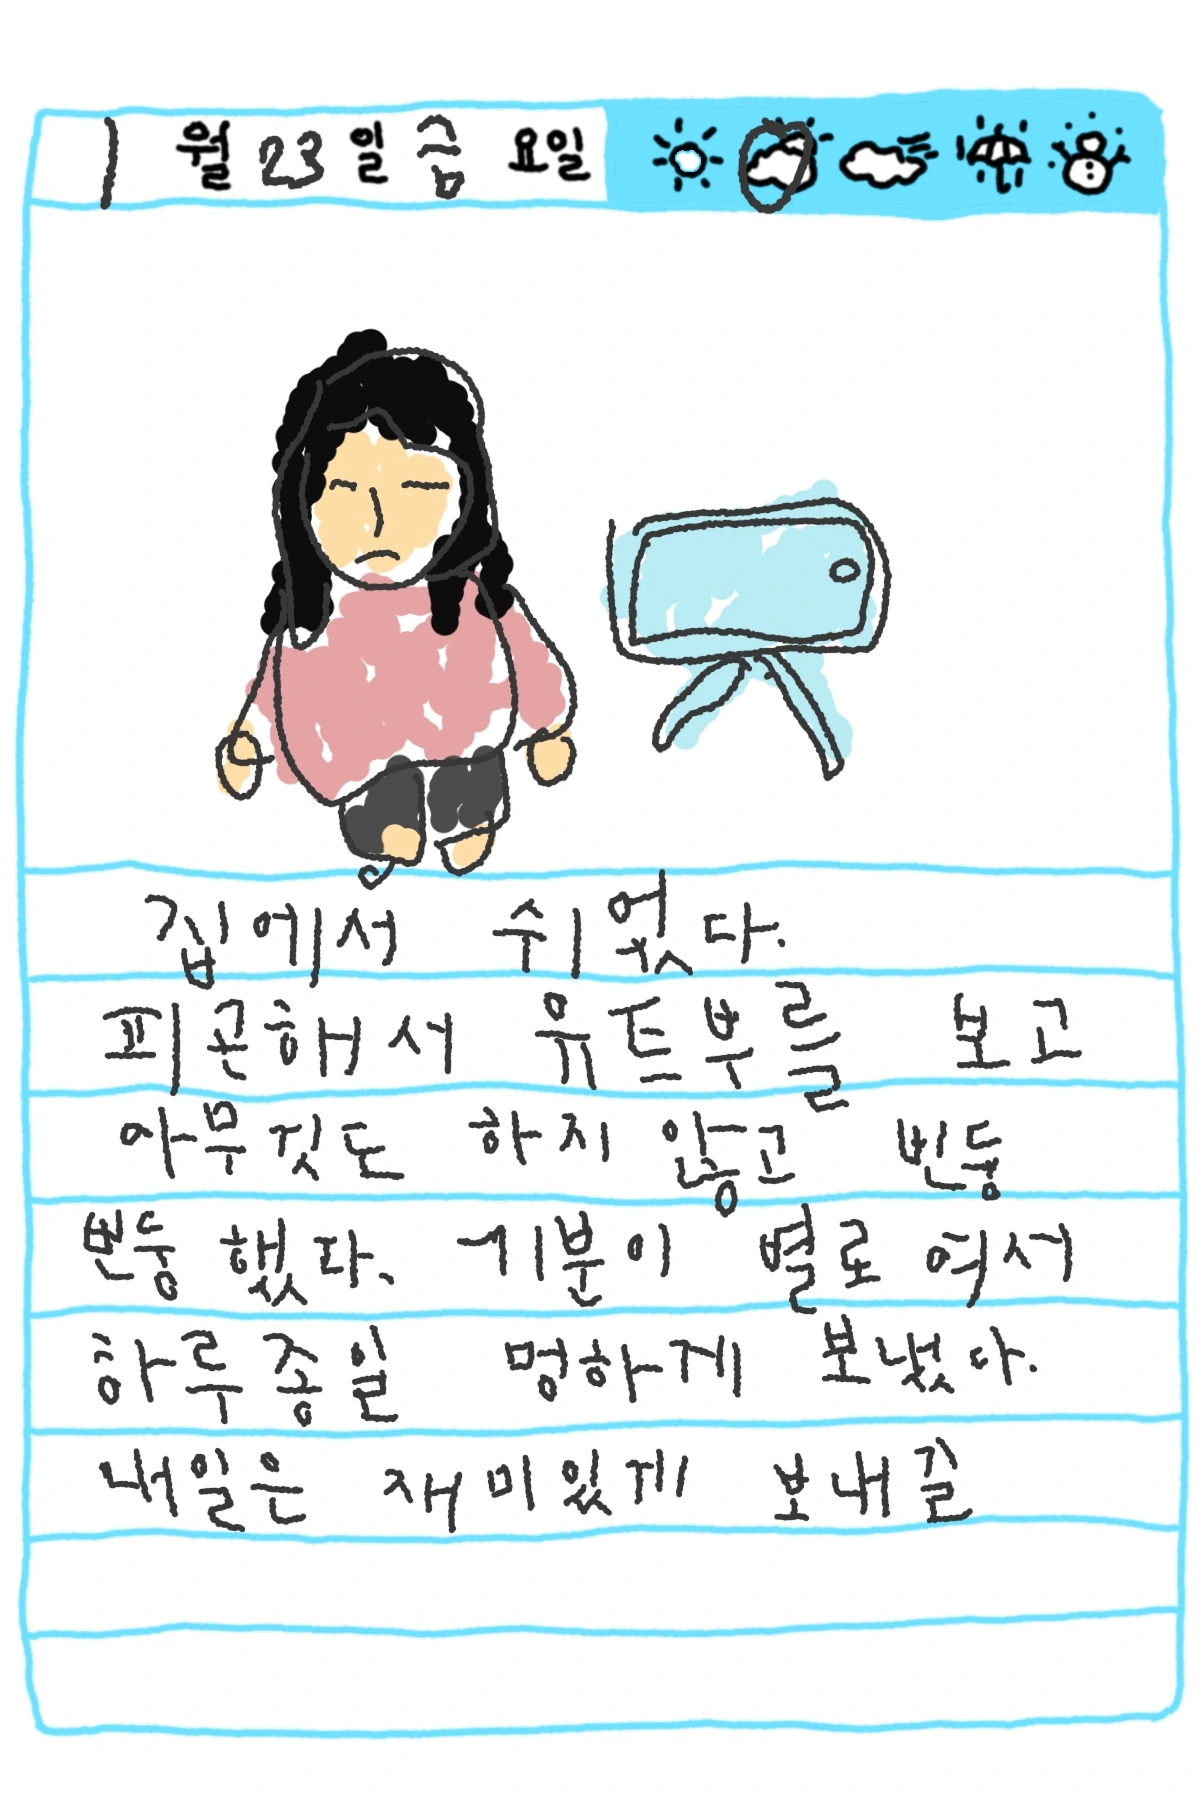 1월 23일 금요일
집에서 쉬었다.
피곤해서 유트부를 보고
아무것도 하지 않고 빈둥
빈둥 했다. 기분이 별로 여서
하루종일 멍하게 보냈다.
내일은 재미있게 보내길